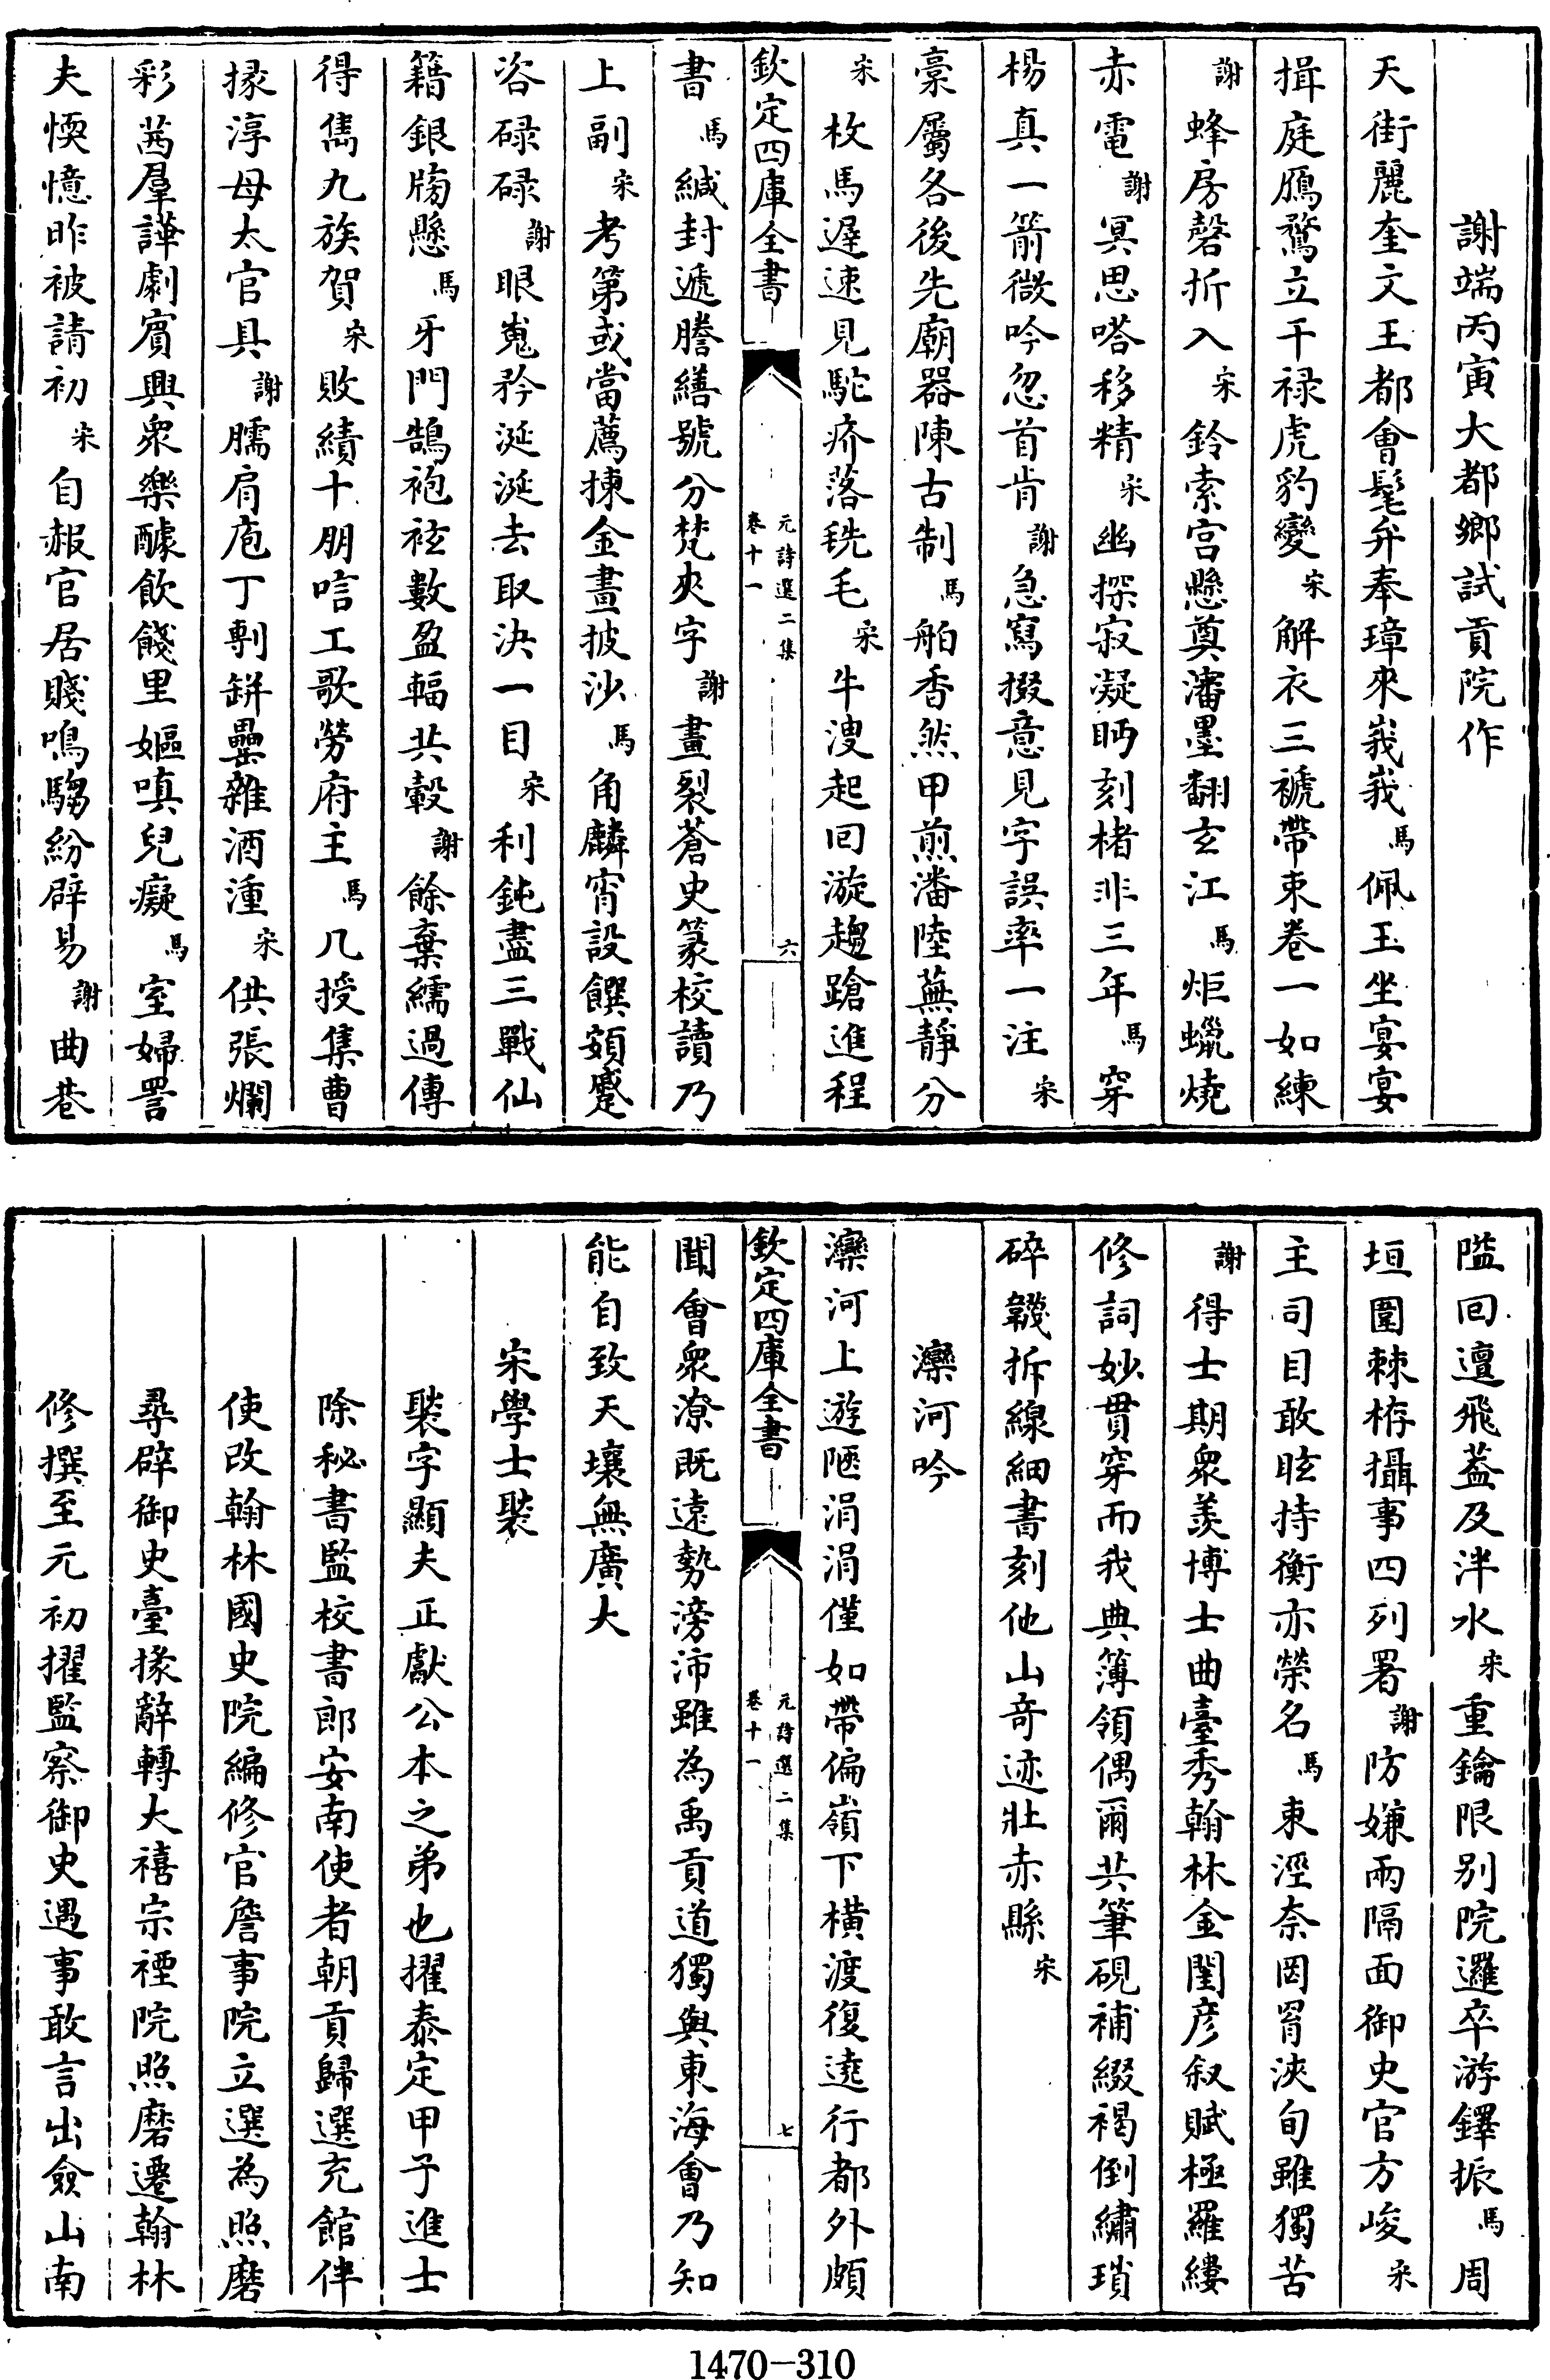 謝端丙寅大都鄉試貢院作
天街麗奎文王都會髦弁奉璋來峩峩馬佩玉坐宴宴
揖庭鴈鶩立干禄虎豹變宋解衣三褫帶束卷一如練
謝蜂房磬折入宋鈴索宮懸奠瀋墨翻玄江馬炬蠟燒
赤電謝冥思嗒移精宋幽探寂凝眄刻楮非三年馬穿
楊真一箭微吟忽首肯謝急寫掇意見字誤率一注宋
稾屬各後先廟器陳古制馬舶香然甲煎潘陸蕪靜分
宋枚馬遲速見駝疥落毨毛宋牛溲起回漩趨蹌進程
欽定四庫全書
元詩選二集
卷十一
六
書馬緘封遞謄繕號分梵夾字謝畫裂蒼史篆校讀乃
上副宋考第或當薦揀金晝披沙馬角麟宵設饌頞蹙
咨碌碌謝眼嵬矜涎涎去取決一目宋利鈍盡三戰仙
籍銀牓懸馬牙門鵠袍袨數盈輻共轂謝餘棄繻過傳
得雋九族賀宋敗績十朋唁工歌勞府主馬几授集曹
掾淳母太官具謝臑肩庖丁剸缾罍雜酒湩宋供張爛
彩茜羣譁劇賓興衆樂醵飲餞里嫗嗔兒癡馬室婦詈
夫愞憶昨被請初宋自赧官居賤鳴騶紛辟易謝曲巷
隘回邅飛葢及泮水宋重鑰限别院邏卒游鐸振馬周
垣圍棘栫攝事四列署謝防嫌兩隔面御史官方峻宋
主司目敢眩持衡亦榮名馬束溼奈罔罥浹旬雖獨苦
謝得士期衆羨博士曲臺秀翰林金閨彦叙賦極羅縷
修詞妙貫穿而我典簿領偶爾共筆硯補綴褐倒繡瑣
碎韈拆線細書刻他山奇迹壯赤縣宋
灤河吟
灤河上遊陿涓涓僅如帶偏嶺下横渡復遶行都外頗
欽定四庫全書
元詩選二集
卷十一
七
聞會衆潦既遠勢滂沛雖為禹貢道獨與東海會乃知
能自致天壤無廣大
宋學士褧
褧字顯夫正獻公本之弟也擢泰定甲子進士
除秘書監校書郎安南使者朝貢歸選充館伴
使改翰林國史院編修官詹事院立選為照磨
尋辟御史臺掾辭轉大禧宗禋院照磨遷翰林
修撰至元初擢監察御史遇事敢言出僉山南
1470-310